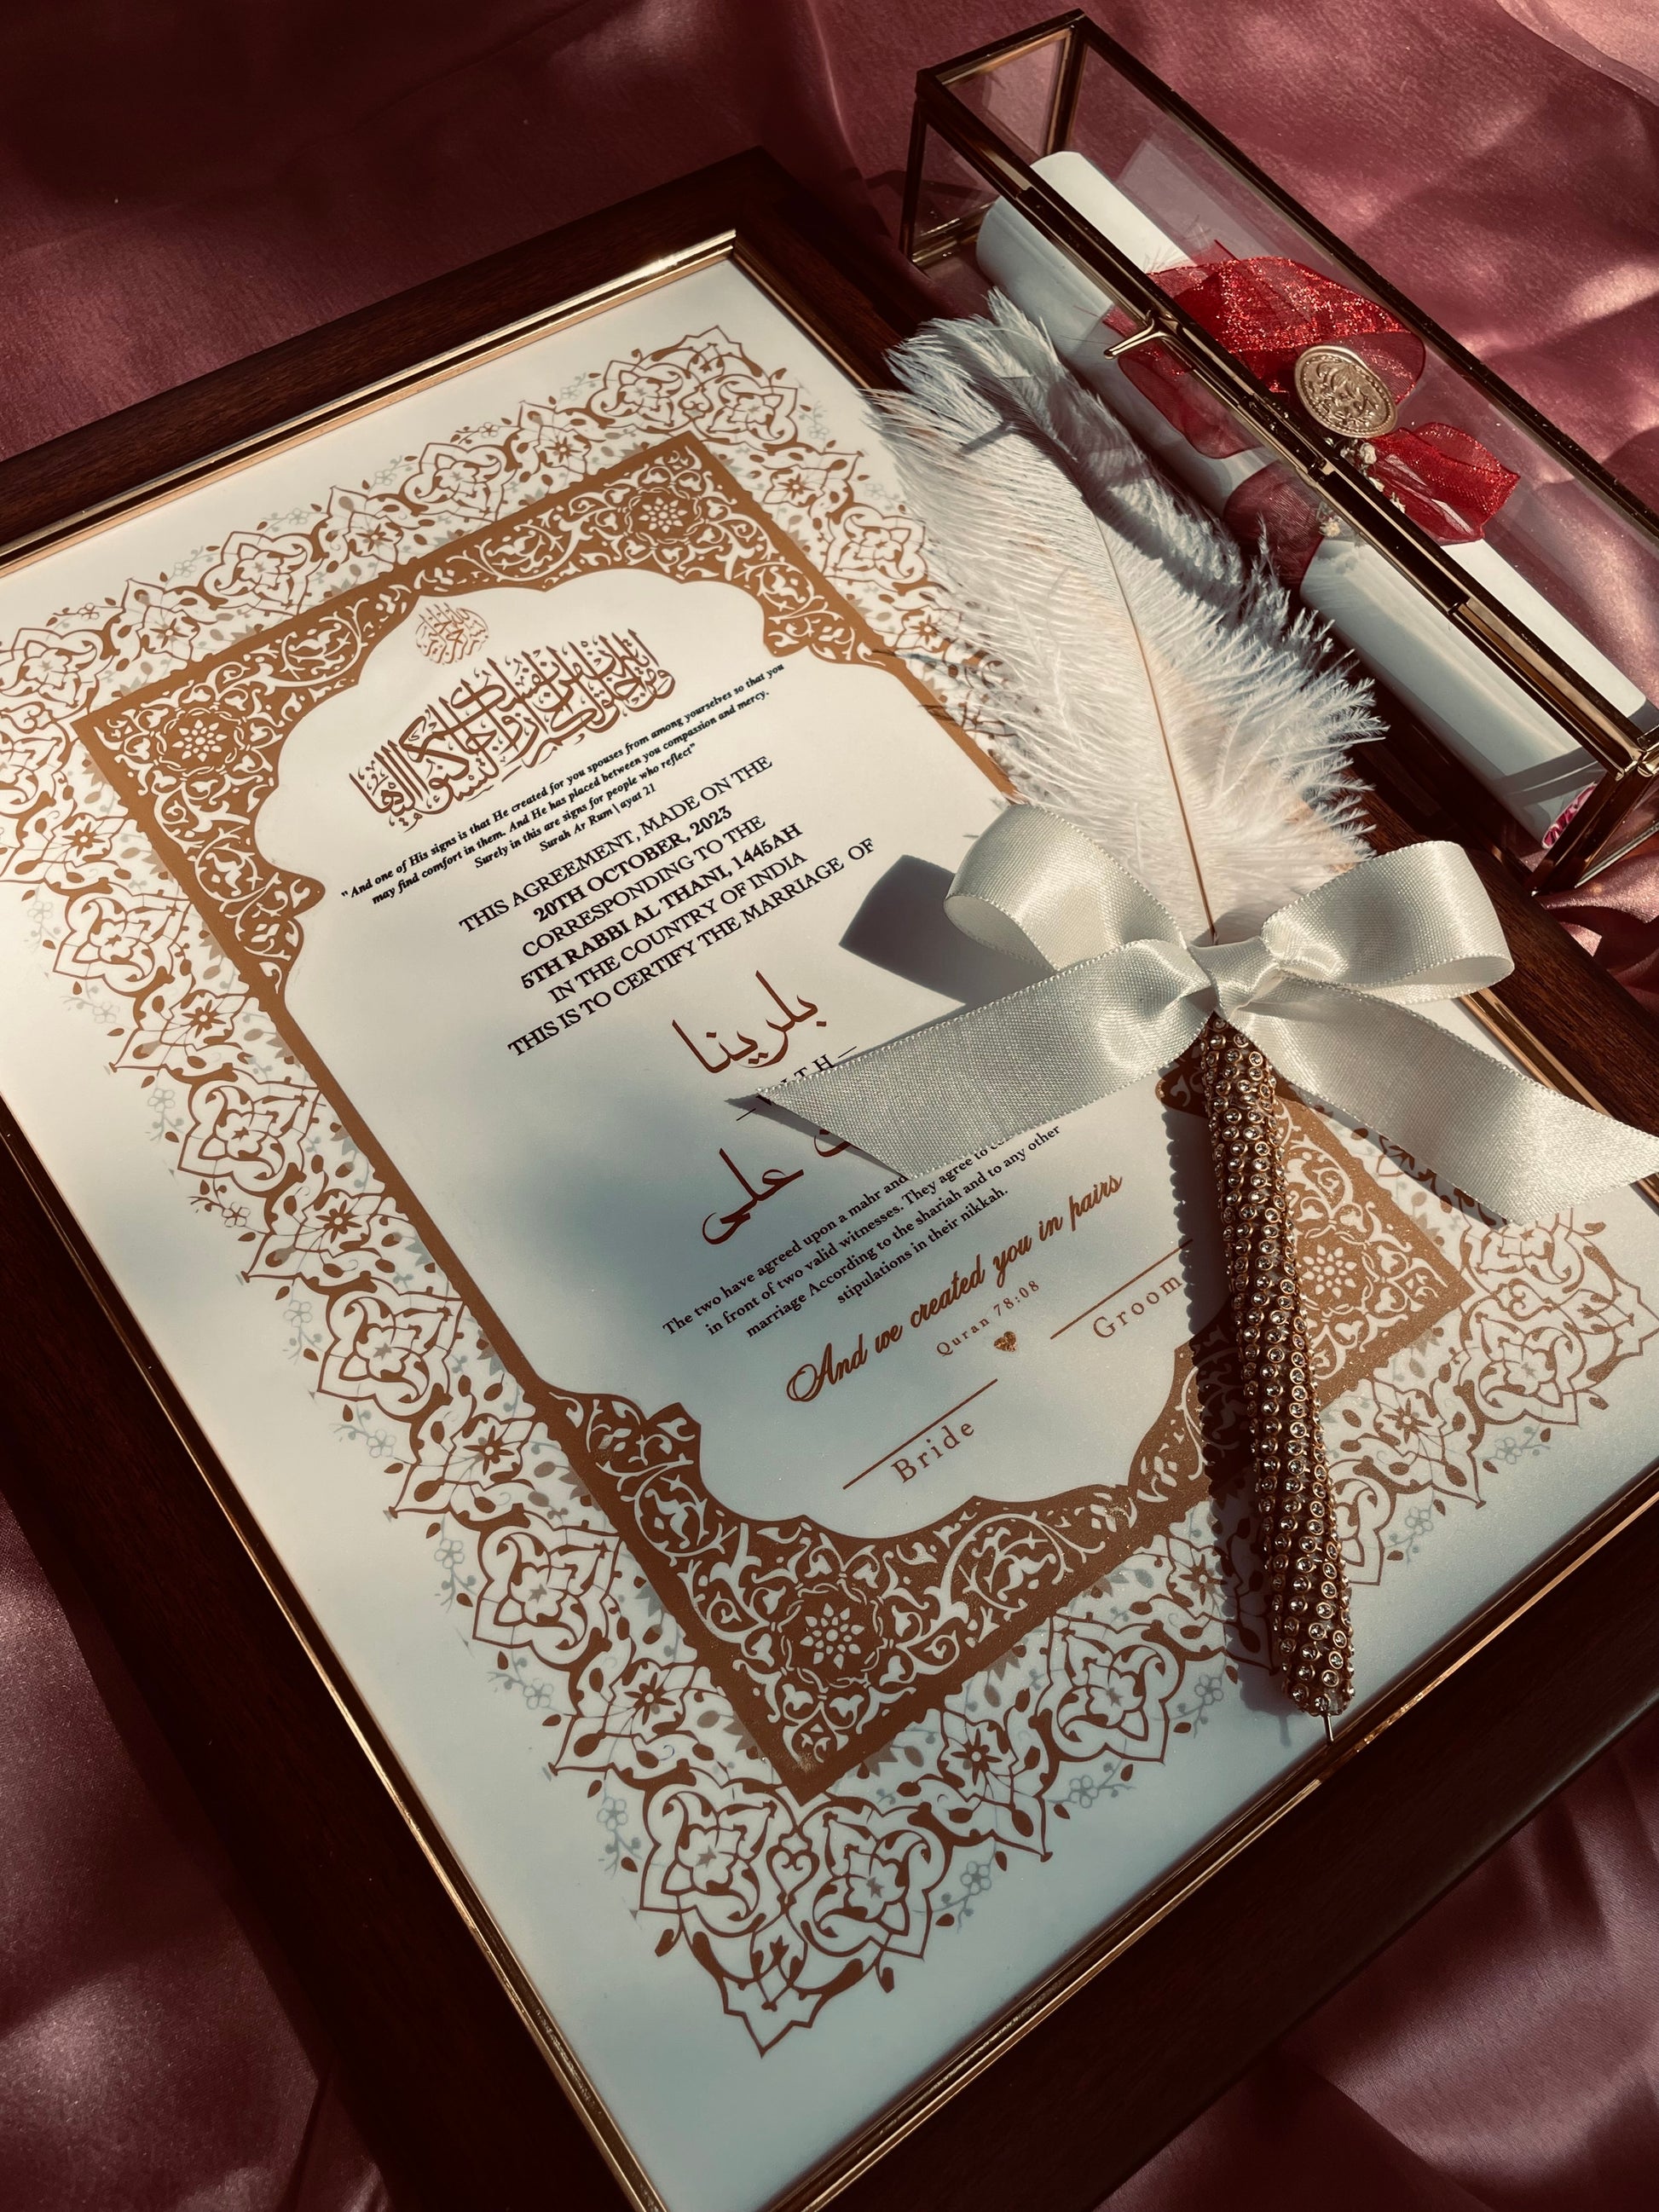 ومن آياته أن خلق لكم من أنفسكم أزواجا لتسكنوا إليها
"And one of His signs is that He created for you spouses from among yourselves so that you
may find comfort in them. And He has placed between you compassion and mercy.
Surely in this are signs for people who reflect"
Surah Ar Rum \ ayat 21
THIS AGREEMENT, MADE ON THE
20TH OCTOBER, 2023
CORRESPONDING TO THE
5TH RABBI AL THANI, 1445AH
IN THE COUNTRY OF INDIA
THIS IS TO CERTIFY THE MARRIAGE OF
بلرينا
علي
The two have agreed upon a mahr and
in front of two valid witnesses. They agree to
marriage According to the shariah and to any other
stipulations in their nikkah.
And we created you in pairs
Quran 78:08
Groom
Bride